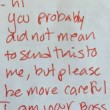 - Hi
you probably
did not mean
to send this to
me, but please
be more careful
I am your Boss